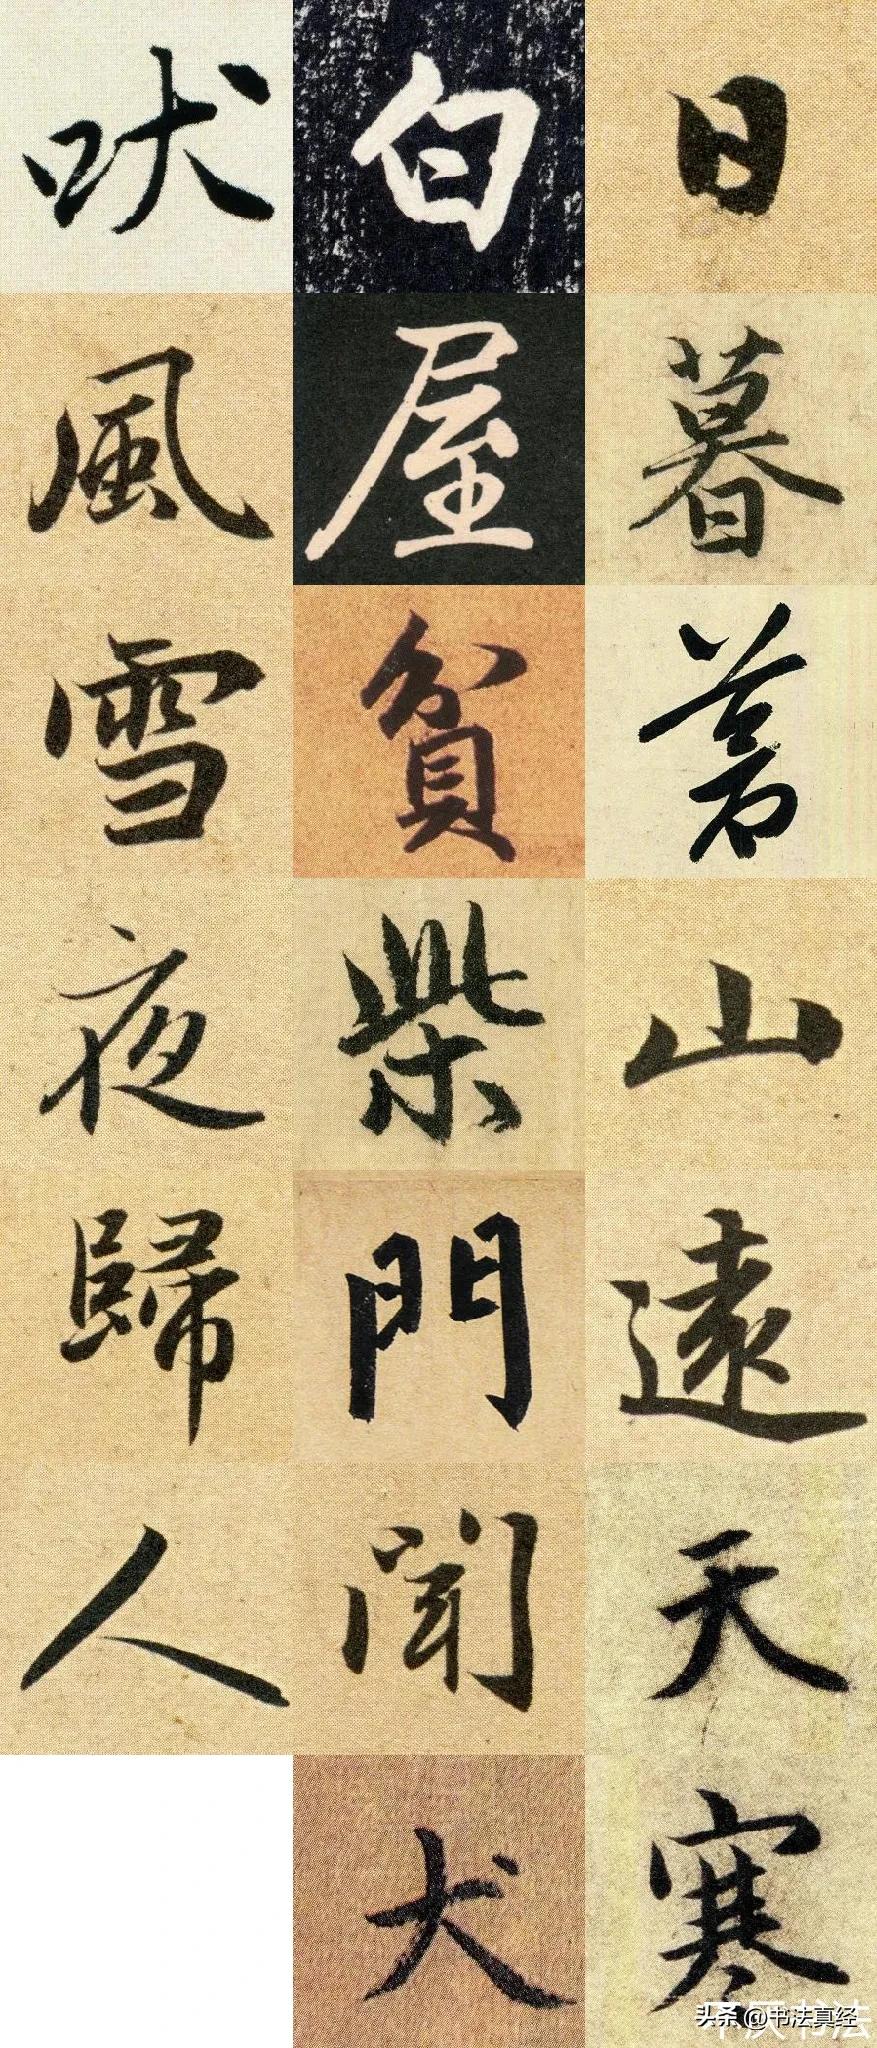 日暮蒼山遠天寒
白屋貧柴門聞犬
吠風雪夜歸人
头条 @书法真经
书法